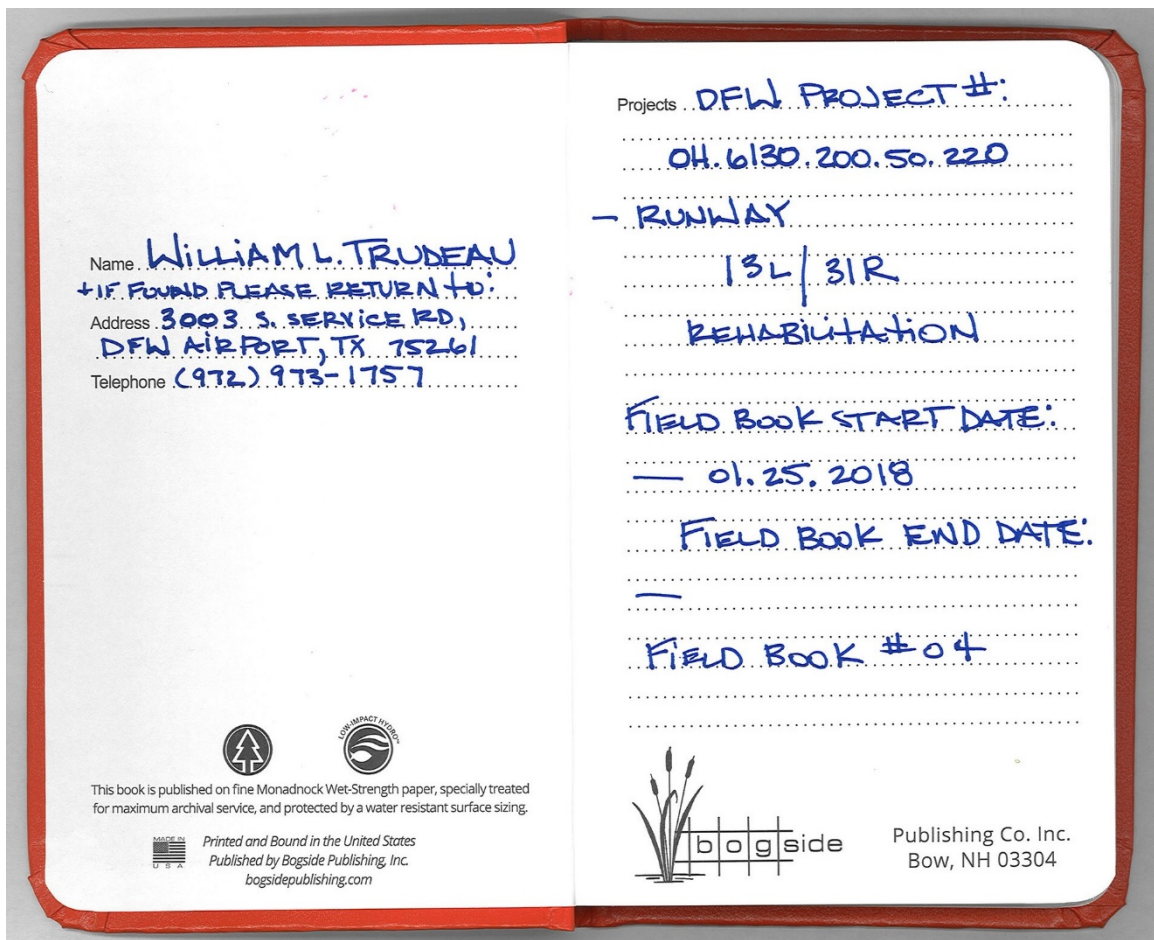 Name WILLIAM L. TRUDEAU
+IF FOUND PLEASE RETURN TO:
Address 3003 S. SERVICE RD,
DFW AIRPORT, TX 75261
Telephone (972) 973-1757
LOW-IMPACT HYDRO™
This book is published on fine Monadnock Wet-Strength paper, specially treated
for maximum archival service, and protected by a water resistant surface sizing.
MADE IN
USA
Printed and Bound in the United States
Published by Bogside Publishing, Inc.
bogsidepublishing.com
Projects DFW PROJECT #:
OH.6130.200.50.220
- RUNWAY
13L/31R
REHABILITATION
FIELD BOOK START DATE:
— 01.25.2018
FIELD BOOK END DATE:
—
FIELD BOOK #04
bogside
Publishing Co. Inc.
Bow, NH 03304